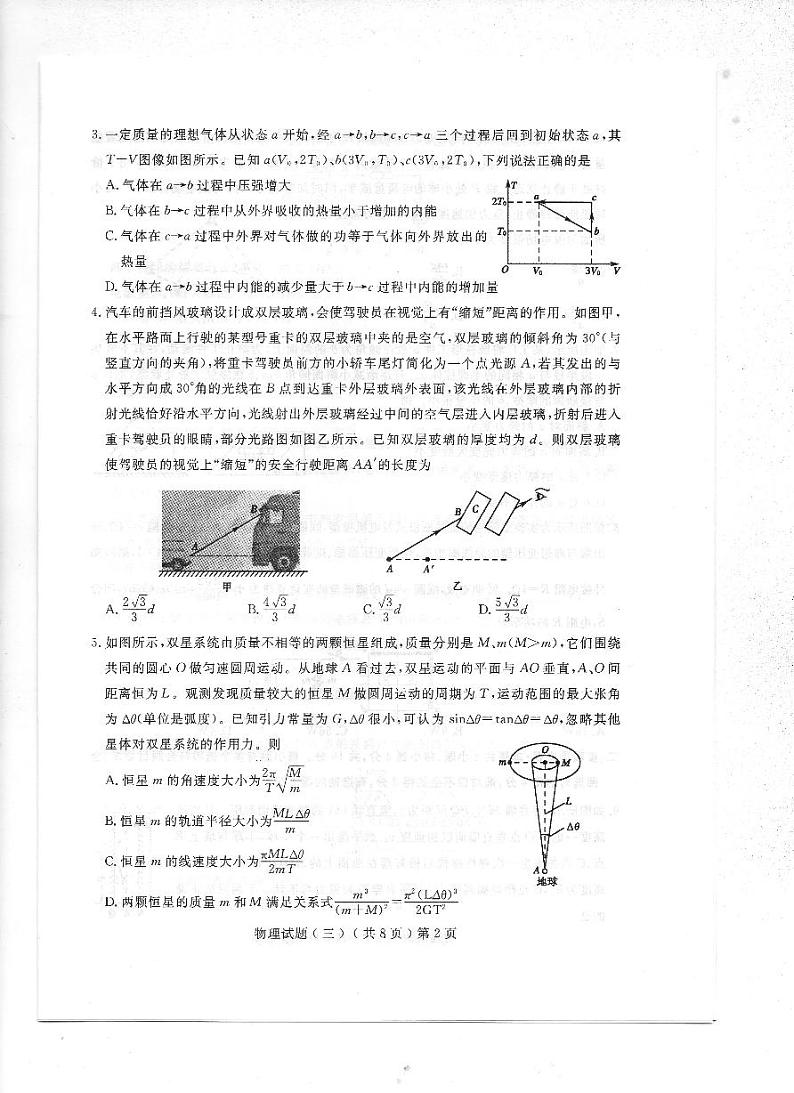 3. 一定质量的理想气体从状态 a 开始,经 a→b,b→c,c→a 三个过程后回到初始状态 a,其
T-V图像如图所示。已知 a(V₀,2T₀)、b(3V₀,T₀)、c(3V₀,2T₀),下列说法正确的是
A. 气体在 a→b 过程中压强增大
B. 气体在 b→c 过程中从外界吸收的热量小于增加的内能
C. 气体在 c→a 过程中外界对气体做的功等于气体向外界放出的
热量
D. 气体在 a→b 过程中内能的减少量大于 b→c 过程中内能的增加量
T
2T₀ a c
T₀ b
O V₀ 3V₀ V
4. 汽车的前挡风玻璃设计成双层玻璃,会使驾驶员在视觉上有“缩短”距离的作用。如图甲,
在水平路面上行驶的某型号重卡的双层玻璃中夹的是空气,双层玻璃的倾斜角为 30°(与
竖直方向的夹角),将重卡驾驶员前方的小轿车尾灯简化为一个点光源 A,若其发出的与
水平方向成 30°角的光线在 B 点到达重卡外层玻璃外表面,该光线在外层玻璃内部的折
射光线恰好沿水平方向,光线射出外层玻璃经过中间的空气层进入内层玻璃,折射后进入
重卡驾驶员的眼睛,部分光路图如图乙所示。已知双层玻璃的厚度均为 d。则双层玻璃
使驾驶员的视觉上“缩短”的安全行驶距离 AA′的长度为
B
A
甲
B C D
A A′
乙
A. 2√3/3 d B. 4√3/3 d C. √3/3 d D. 5√3/3 d
5. 如图所示,双星系统由质量不相等的两颗恒星组成,质量分别是 M、m(M>m),它们围绕
共同的圆心 O 做匀速圆周运动。从地球 A 看过去,双星运动的平面与 AO 垂直,A、O 间
距离恒为 L。观测发现质量较大的恒星 M 做圆周运动的周期为 T,运动范围的最大张角
为 Δθ(单位是弧度)。已知引力常量为 G,Δθ 很小,可认为 sinΔθ=tanΔθ=Δθ,忽略其他
星体对双星系统的作用力。则
A. 恒星 m 的角速度大小为 2π/T √(M/m)
B. 恒星 m 的轨道半径大小为 MLΔθ/m
C. 恒星 m 的线速度大小为 πMLΔθ/2mT
D. 两颗恒星的质量 m 和 M 满足关系式 m³/(m+M)² = π²(LΔθ)³/2GT²
O
m M
L
Δθ
A
地球
物理试题(三)(共 8 页)第 2 页